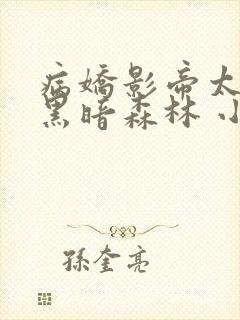 病嬌影帝太
黑暗森林 小
孫奎亮